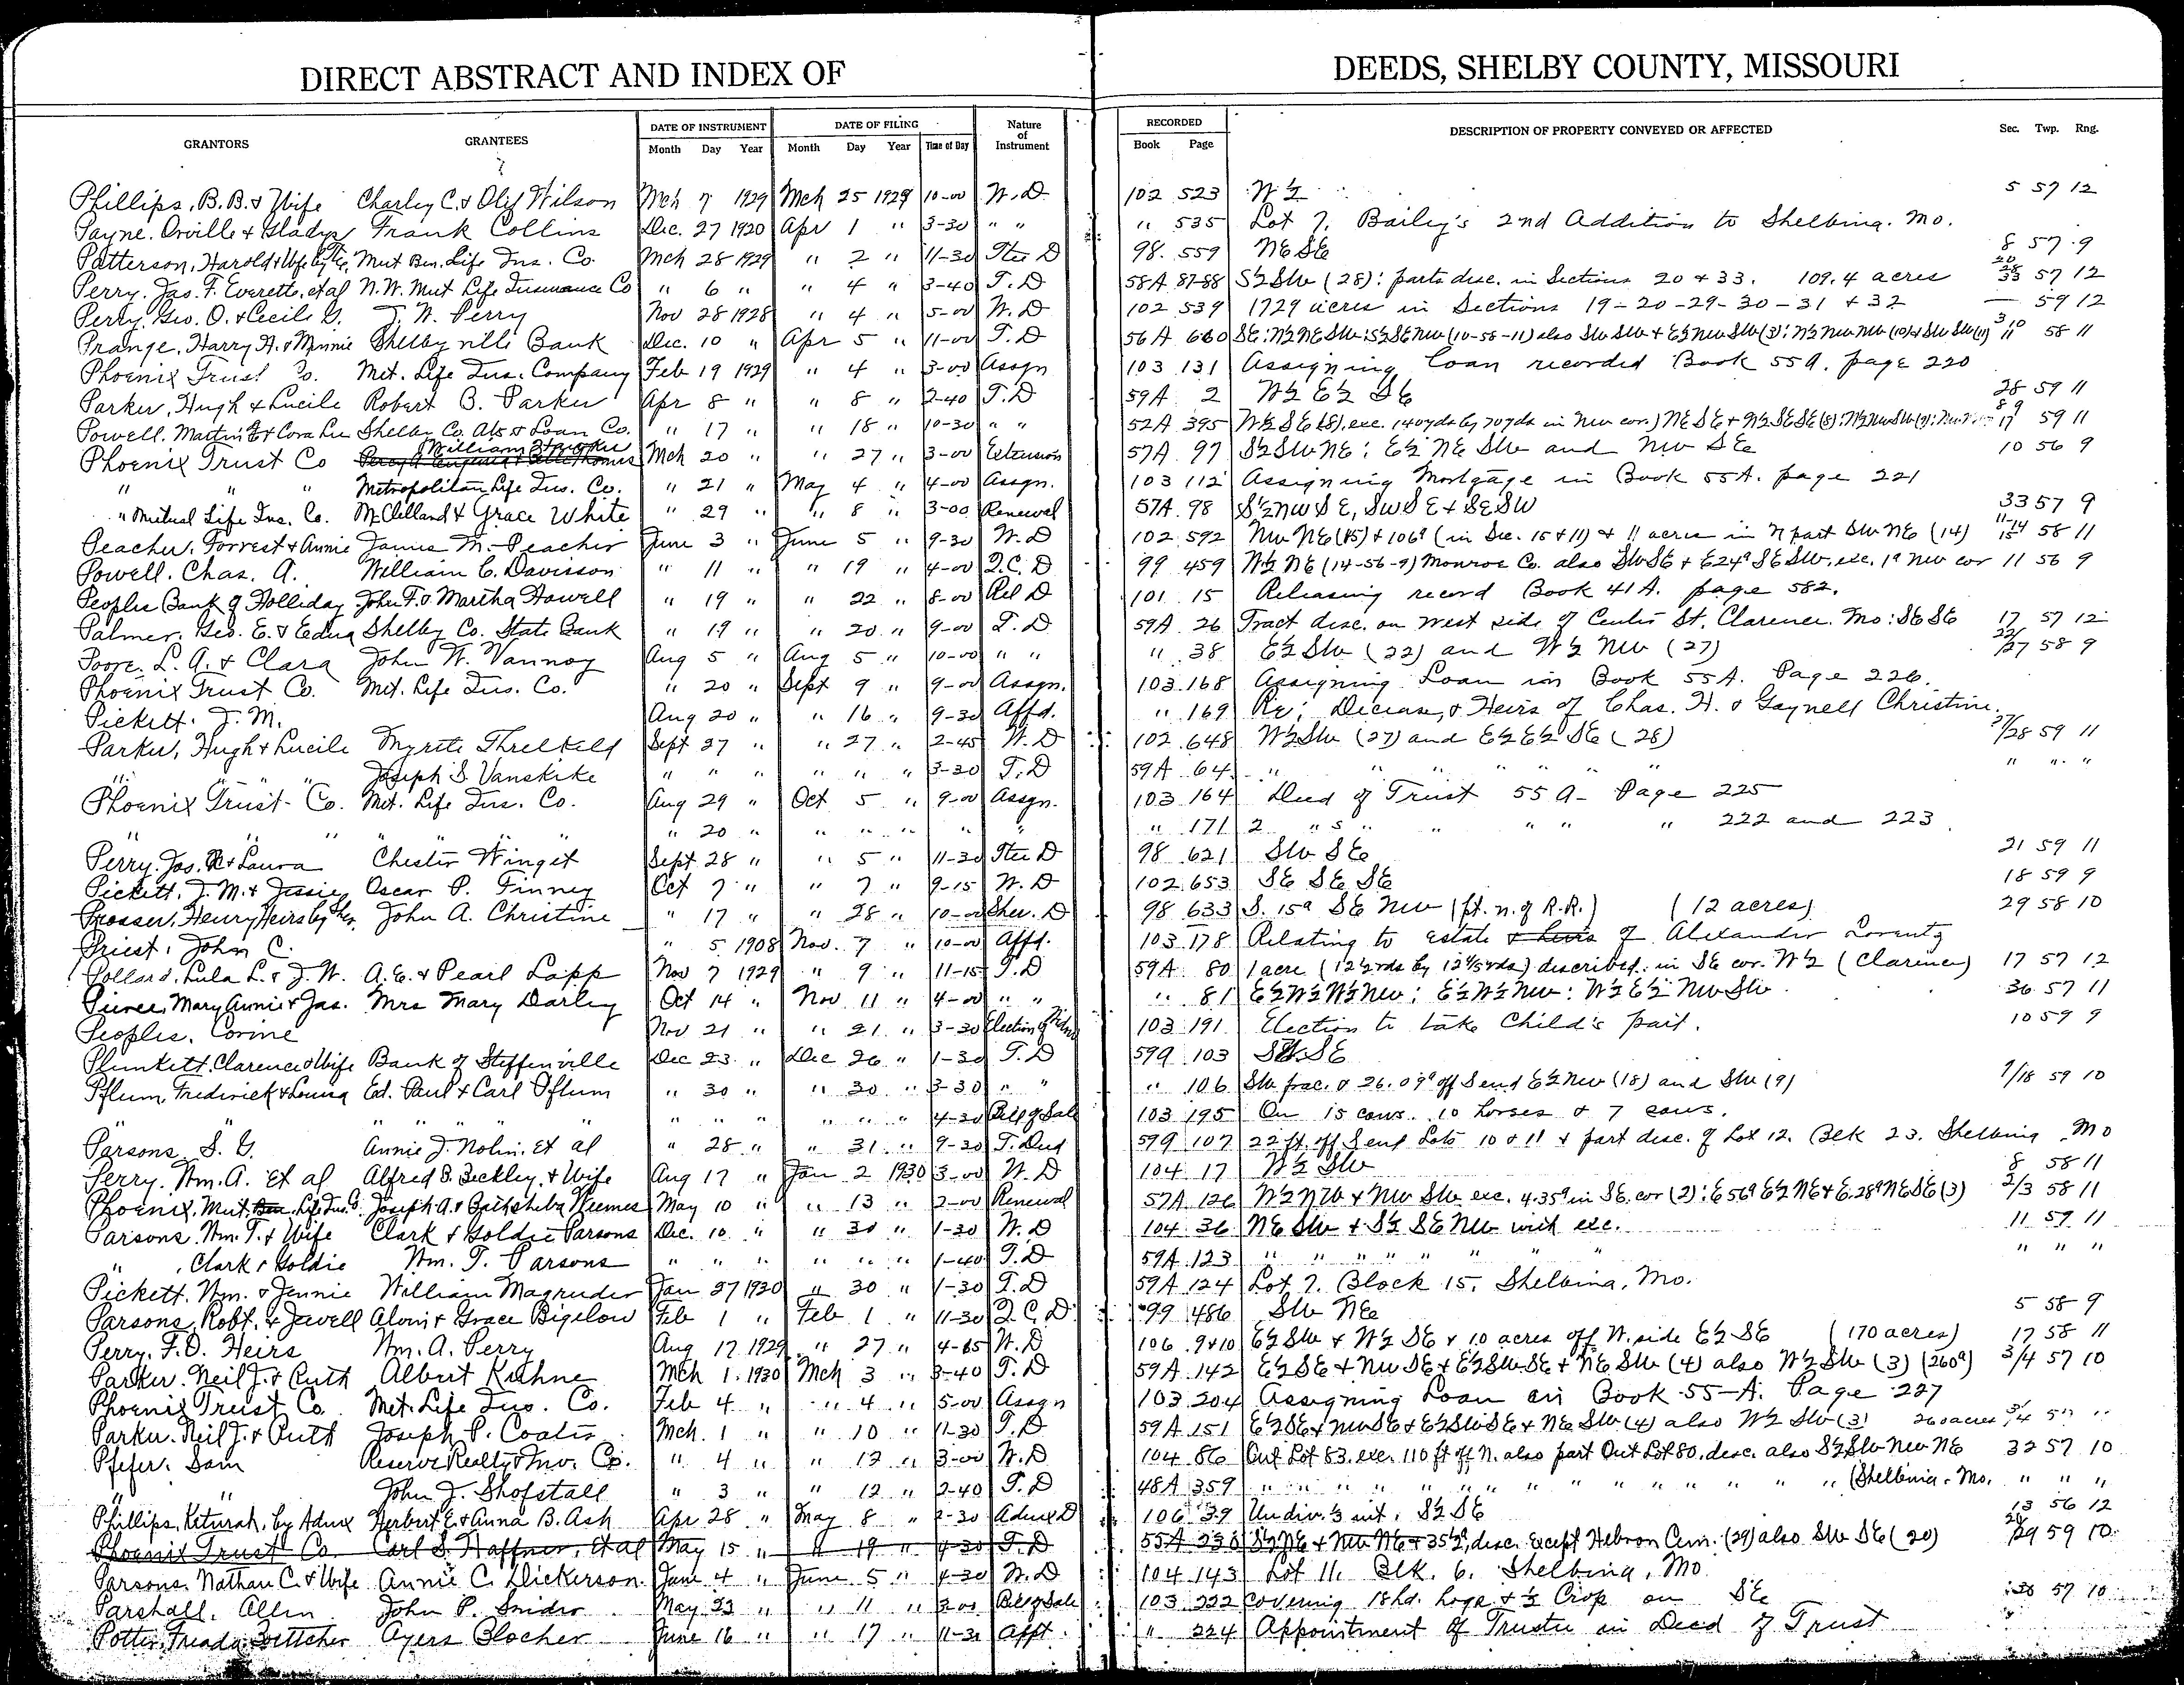 DIRECT ABSTRACT AND INDEX OF DEEDS, SHELBY COUNTY, MISSOURI
GRANTORS GRANTEES DATE OF INSTRUMENT DATE OF FILING Nature of Instrument RECORDED DESCRIPTION OF PROPERTY CONVEYED OR AFFECTED Sec. Twp. Rng.
Month Day Year Month Day Year Time of Day Book Page
Phillips, B.B. & Wife Charley C. & Wilson Mch 7 1929 Mch 25 1929 10-00 W.D 102 523 W½ 5 57 12
Payne. Orville & Gladys Frank Collins Dec. 27 1920 Apr 1 " 3-30 " " " 535 Lot 7. Bailey's 2nd Addition to Shelbina. Mo.
Patterson, Harold & Wife by Mut Ben. Life Ins. Co. Mch 28 1929 " 2 " 11-30 Tter D 98. 559 NE SE 8 57 9
Perry. Jas. F. Everett, et al N.W. Mut Life Insurance Co " 6 " " 4 " 3-40 T.D 58A 87-88 S½ SW (28): parts desc. in Sections 20 + 33. 109.4 acres 20 28 33 57 12
Perry. Geo. O. & Cecile G. J. W. Perry Nov 28 1928 " 4 " 5-00 W.D 102 539 1729 acres in Sections 19-20-29-30-31 + 32 — 59 12
Prange, Harry H. & Minnie Shelbyville Bank Dec. 10 " Apr 5 " 11-00 T.D 56A 660 SE: W½ NE SW: S½ SE NW (10-58-11) also SW SW + E½ NW SW (3): W½ NW NW (10) & SW SW (11) 3 10 11 58 11
Phoenix Trust Co. Met. Life Ins. Company Feb 19 1929 " 4 " 3-00 Assgn 103 131 Assigning Loan recorded Book 55A. page 220
Parker, Hugh & Lucile Robert B. Parker Apr 8 " " 8 " 2-40 T.D 59A 2 W½ E½ SE 28 59 11
Powell. Martin & Cora Lee Shelby Co. Abs & Loan Co. " 17 " " 18 " 10-30 " " 52A 395 W½ SE (8), exc. 140yds by 70yds in NW cor.) NE SE + N½ SE SE (8): 8 9 17 59 11
Phoenix Trust Co William Mch 20 " " 27 " 3-00 Extension 57A 97 S½ SW NE: E½ NE SW and NW SE 10 56 9
" " " Metropolitan Life Ins. Co. " 21 " May 4 " 4-00 Assgn. 103 112 Assigning Mortgage in Book 55A. page 221
" Mutual Life Ins. Co. McClelland & Grace White " 29 " " 8 " 3-00 Renewal 57A. 98 S½ NW SE, SW SE + SE SW 33 57 9
Peacher, Forrest & Annie James M. Peacher June 3 " June 5 " 9-30 W.D 102 592 NW NE (15) + 106ª (in Sec. 15 + 11) + 11 acres in N part SW NE (14) 11-14 15 58 11
Powell. Chas. A. William C. Davisson " 11 " " 19 " 4-00 Q.C.D 99 459 W½ NE (14-56-9) Monroe Co. also SW SE + E24ª SE SW, exc. 1ª NW cor 11 56 9
Peoples Bank of Holliday John F. & Martha Howell " 19 " " 22 " 8-00 Rel D 101 15 Releasing record Book 41A. page 582.
Palmer. Geo. E. & Edna Shelby Co. State Bank " 19 " " 20 " 9-00 T.D 59A 26 Tract desc. on West side of Center St. Clarence. Mo: SE SE 17 57 12
Poore. L. A. & Clara John W. Vannoy Aug 5 " Aug 5 " 10-00 " " " 38 E½ SW (22) and W½ NW (27) 22/27 58 9
Phoenix Trust Co. Met. Life Ins. Co. " 20 " Sept 9 " 9-00 Assgn. 103 168 Assigning Loan in Book 55A. Page 226.
Pickett. J. M. Aug 20 " " 16 " 9-30 Affd. " 169 Re: Decease, & Heirs of Chas. H. & Gaynell Christine.
Parker, Hugh & Lucile Myrtle Threlkeld Sept 27 " " 27 " 2-45 W.D 102 648 W½ SW (27) and E½ E½ SE (28) 27/28 59 11
" " " Joseph S. Vanskike " " " " " " 3-30 T.D 59A 64 " " " " " " " " "
Phoenix Trust Co. Met. Life Ins. Co. Aug 29 " Oct 5 " 9-00 Assgn. 103 164 Deed of Trust 55A - Page 225
" " " " " " " 20 " " " " " " " 171 2 " s " " " " " 222 and 223
Perry. Jas. R & Laura Chester Winget Sept 28 " " 5 " 11-30 Tter D 98 621 SW SE 21 59 11
Pickett. J. M. & Jessie Oscar P. Finney Oct 7 " " 7 " 9-15 W.D 102 653 SE SE SE 18 59 9
Prosser, Henry Heirs by Shr. John A. Christine " 17 " " 28 " 10-00 Sher. D 98 633 S. 15ª SE NW (pt. n. of R.R.) (12 acres) 29 58 10
Priest, John C. " 5 1908 Nov. 7 " 10-00 Affd. 103 178 Relating to estate & heirs of Alexander Lorentz
Pollard, Lula L. & J. W. A. E. & Pearl Lapp Nov 7 1929 " 9 " 11-15 T.D 59A 80 1 acre (12½rds by 12⅘rds) described in SE cor. W½ (Clarence) 17 57 12
Pierce, Mary Annie & Jas. Mrs Mary Darley Oct 14 " Nov 11 " 4-00 " " " 81 E½ W½ W½ NW: E½ W½ NW: W½ E½ NW SW 36 57 11
Peoples, Corine Nov 21 " " 21 " 3-30 Election of 103 191 Election to take Child's part. 10 59 9
Plunkett, Clarence & Wife Bank of Steffenville Dec 23 " Dec 26 " 1-30 T.D 59A 103 SE
Pflum, Frederick & Louisa Ed. Paul & Carl Pflum " 30 " " 30 " 3-30 " " " 106 SW frac. & 26.09ª off S end E½ NW (18) and SW (9) 9/18 59 10
" " " " " " " " " 4-30 Bill of Sale 103 195 On 15 cows. 10 horses & 7 sows.
Parsons. S. G. Annie J. Nolin, Et al " 28 " " 31 " 9-30 T. Deed 59A 107 22 ft. off S end Lots 10 & 11 & part desc. of Lot 12. Blk 23. Shelbina, Mo
Perry. Wm. A. Et al Alfred B. Bickley, & Wife Aug 17 " Jan 2 1930 3-00 W.D 104 17 W½ SW 8 58 11
Phoenix, Mut, Ben. Life Ins. Co. Joseph A. & Weemes May 10 " " 13 " 2-00 Renewal 57A 126 W½ NW + NW SW exc. 4.35ª in SE. cor (2): E 56ª E½ NE + E.28ª NE SE (3) 2/3 58 11
Parsons. Wm. T. & Wife Clark & Goldie Parsons Dec. 10 " " 30 " 1-30 W.D 104 36 NE SW + S½ SE NW with exc. 11 59 11
" , Clark & Goldie Wm. T. Parsons " " " " " " 1-40 T.D 59A 123 " " " " " " " " " "
Pickett. Wm. & Jennie William Magruder Jan 27 1930 " 30 " 1-30 T.D 59A 124 Lot 7. Block 15, Shelbina, Mo.
Parsons, Robt. & Jewell Alvin & Grace Bigelow Feb 1 " Feb 1 " 11-30 Q.C.D 99 486 SW NE 5 58 9
Perry. F. D. Heirs Wm. A. Perry Aug 17 1929 " 27 " W.D 106 9+10 E½ SW + W½ SE + 10 acres off W. side E½ SE (170 acres) 17 58 11
Parker. Neil J. & Ruth Albert Kuhne Mch 1. 1930 Mch 3 " 3-40 T.D 59A 142 E½ SE + NW SE + E½ SW SE + NE SW (4) also W½ SW (3) (260ª) 3/4 57 10
Phoenix Trust Co Met. Life Ins. Co. Feb 4 " " 4 " 5-00 Assgn 103 204 Assigning Loan in Book 55-A. Page 227
Parker. Neil J. & Ruth Joseph P. Coates Mch. 1 " " 10 " 11-30 T.D 59A 151 E½ SE + NW SE + E½ SW SE + NE SW (4) also W½ SW (3) 260 acres 3/4 57 "
Pfefer. Sam Reserve Realty & Inv. Co. " 4 " " 12 " 3-00 W.D 104 86 Out Lot 83. exc. 110 ft off N. also part Out Lot 80. desc. also S½ SW NW NE 32 57 10
" " John J. Shofstall " 3 " " 12 " 2-40 T.D 48A 359 " " " " " " " " " " (Shelbina. Mo. " " "
Phillips, Keturah, by Admx Herbert E. & Anna B. Ash Apr 28 " May 8 " 2-30 Admx D 106 39 Undiv. ⅓ int. S½ SE 13 56 12
Phoenix Trust Co. Carl S. Haffner, et al May 15 " " 19 " 4-30 T.D 55A 230 S½ NE + NW NE + 35½ª, desc. Except Hebron Cem. (29) also SW SE (20) 20/29 59 10
Parsons. Nathan C. & Wife Annie C. Dickerson June 4 " June 5 " 4-30 W.D 104 143 Lot 11. Blk. 6. Shelbina, Mo
Parshall. Allen John P. Snider May 23 " " 11 " Bill of Sale 103 222 Covering 18 hd. hogs & ½ Crop on SE 57 10
Potter, Freada Boettcher Ayers Blocher June 16 " " 17 " 11-30 Appt. " 224 Appointment of Trustee in Deed of Trust